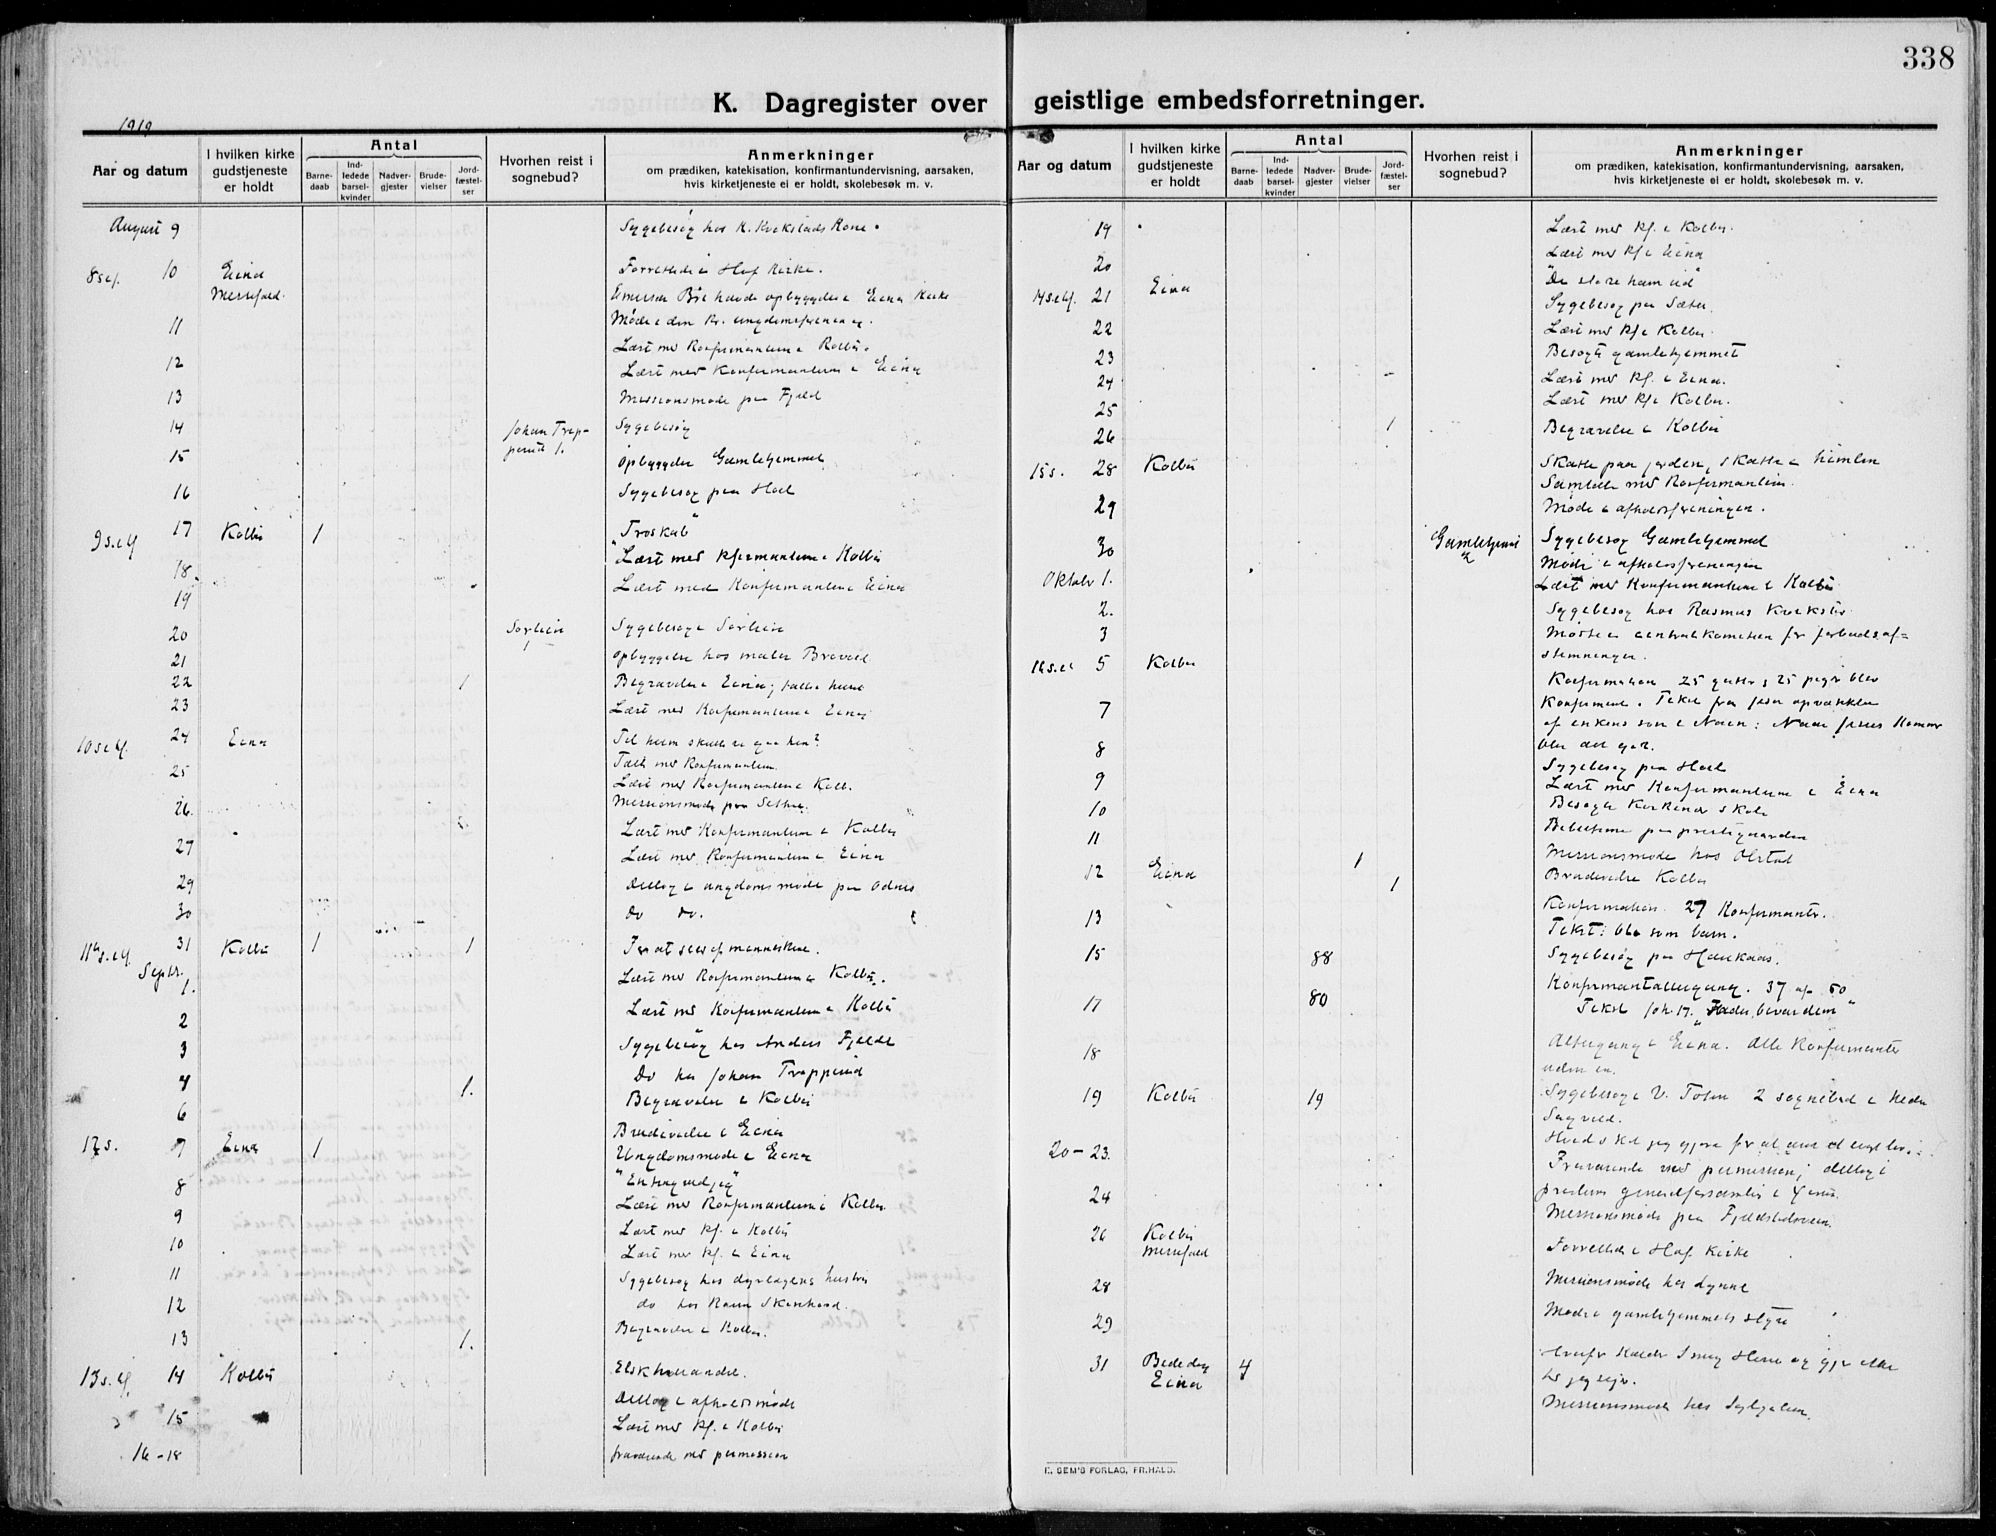 338
K. Dagregister over geistlige embedsforretninger.
1919
Aar og datum
I hvilken kirke gudstjeneste er holdt
Antal
Barne-daab
Ind-ledede barsel-kvinder
Nadver-gjester
Brude-vielser
Jord-fæstel-ser
Hvorhen reist i sognebud?
Anmerkninger
om prædiken, katekisation, konfirmantundervisning, aarsaken, hvis kirketjeneste ei er holdt, skolebesøk m. v.
August 9 Sygebesøg hos Kone
8 s e f. 10 Eina Forrettede i Hof Kirke.
Messefald. havde opbyggelse i Eina Kirke
11 Møde i den kr. ungdomsforening.
Læst med Konfirmanterne i Kolbu
12 Læst med Konfirmanterne i Eina
13 Missionsmøde paa Fjeld
14 Johan Trep- Sygebesøg
perud 1.
15 Opbyggelse Gamlehjemmet
16 Sygebesøg paa Hoel
9 s. e. tf 17 Kolbu 1 "Troskab"
Læst med Kfirmanterne i Kolbu
18. Læst med Konfirmanterne Eina
19
20 Sørlien 1 Sygebesøg i Sørlien
21 Opbyggelse hos maler
22 1 Begravelse i Eina;
23 Læst med Konfirmanterne i Eina
10 s e tf. 24 Eina Til hvem skulle vi gaa hen?
med Konfirmanterne
25 Læst med Konfirmanterne i Kolb.
26. Missionsmøde paa
Læst med Konfirmanterne i Kolbu
27 Læst med Konfirmanterne i Eina
29 Deltog i ungdomsmøde paa Odnes
30 do do.
11te s. e tf. 31 Kolbu 1 1 For at sees af menneskene.
Septr. 1. Læst med Konfirmanterne Kolbu.
2 Læst med Konfirmanterne i Kolbu
3 Sygebesøg hos Anders Fjelde
4 1. Do hos Johan Trepperud
Begravelse i Kolbu
6 Brudevielse i Eina
12 s. 7 Eina 1 Ungdomsmøde i Eina
8 Læst med Konfirmanterne i Kolbu
9 Læst med kf. i Kolbu
10 Læst med kf. i Eina
11 Sygebesøg hos dyrlægens hustru
12 do hos
13 1. Begravelse i Kolbu.
13 s. tf. 14 Kolbu Elsk hverandre.
Deltog i afholdsmøde
15 Læst med kf. i Kolbu
16-18 fraværende med permission
Aar og datum
I hvilken kirke gudstjeneste er holdt
Antal
Barne-daab
Ind-ledede barsel-kvinder
Nadver-gjester
Brude-vielser
Jord-fæstel-ser
Hvorhen reist i sognebud?
Anmerkninger
om prædiken, katekisation, konfirmantundervisning, aarsaken, hvis kirketjeneste ei er holdt, skolebesøk m. v.
19 Læst med kf. i Kolbu.
20 Læst med kf i Eina
14 s e tf. 21 Eina
Sygebesøg paa Sæter
22 Læst med kf i Kolbu.
23 Besøgt gamlehjemmet
24 Læst med kf. i Eina.
25 Læst med kf i Kolbu.
26 1 Begravelse i Kolbu
15 s. 28 Kolbu Skatte paa jorden, skatte i himlen
Samtale med Konfirmanterne.
29 Møde i afholdsforeningen.
30 Gamlehjemmet 2 Sygebesøg Gamlehjemmet
Møde i afholdsforeningen
Oktober 1. Læst med Konfirmanterne i Kolbu
2. Sygebesøg hos Rasmus
3 Møde i centralkomiteen for forbudsaf-
stemningen.
16 s. e 5 Kolbu Konfirmation 25 gutter 25 piger blev
7 konfirmeret. Tekst fra Jesu opvækkelse
af enkens søn i Nain: Naar Jesus kommer
8 Sygebesøg paa Hoel
9 Læst med Konfirmanterne i Eina
10 Besøgte skole
11 Bibeltime paa prestegaarden
Missionsmøde hos Olstad
12 Eina 1 Brudevielse Kolbu
1
13 Konfirmation 27 Konfirmanter.
Tekst: bli som barn.
15 88 Sygebesøg paa Haukaas.
Konfirmantaltergang. 37 af 50
17 80 Tekst Joh. 17. "Fader, bevar dem"
18 Altergang i Eina. Alle Konfirmanter
uden en.
19 Kolbu 19 Sygebesøg i V. Toten 2 sognebud i Nedre
Sagvold.
20-23. Hvad skal jeg gjøre for at
Fraværende med permission; deltog i
24 presternes generalforsamling i
Missionsmøde paa
26 Kolbu Forrettede i Hof Kirke
Messefald
28 Missionsmøde hos Lynne
29 Møde i gamlehjemmets styre
31 Bededag 4
Eina
Missionsmøde hos
E. SEM'S FORLAG, FR.HALD.